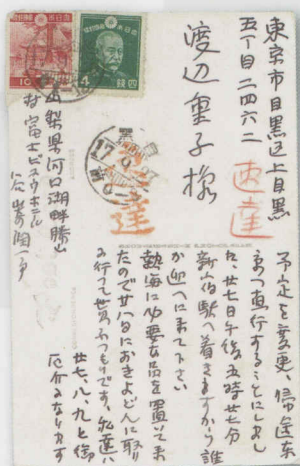 東京市目黒区上目黒
五丁目二四六二
渡辺重子様
速達
山梨県河口湖畔勝山
村富士ビューホテル
谷崎潤一郎
予定を変更、帰途東
京へ直行することにしまし
た、廿七日午後五時廿七分
新宿駅へ着きますから誰
か迎へに来て下さい
熱海に必要な品を置いて来
たので廿八日におきよどんに取り
に行つて貰ふつもりです、
廿七、八、九と御
厄介になります